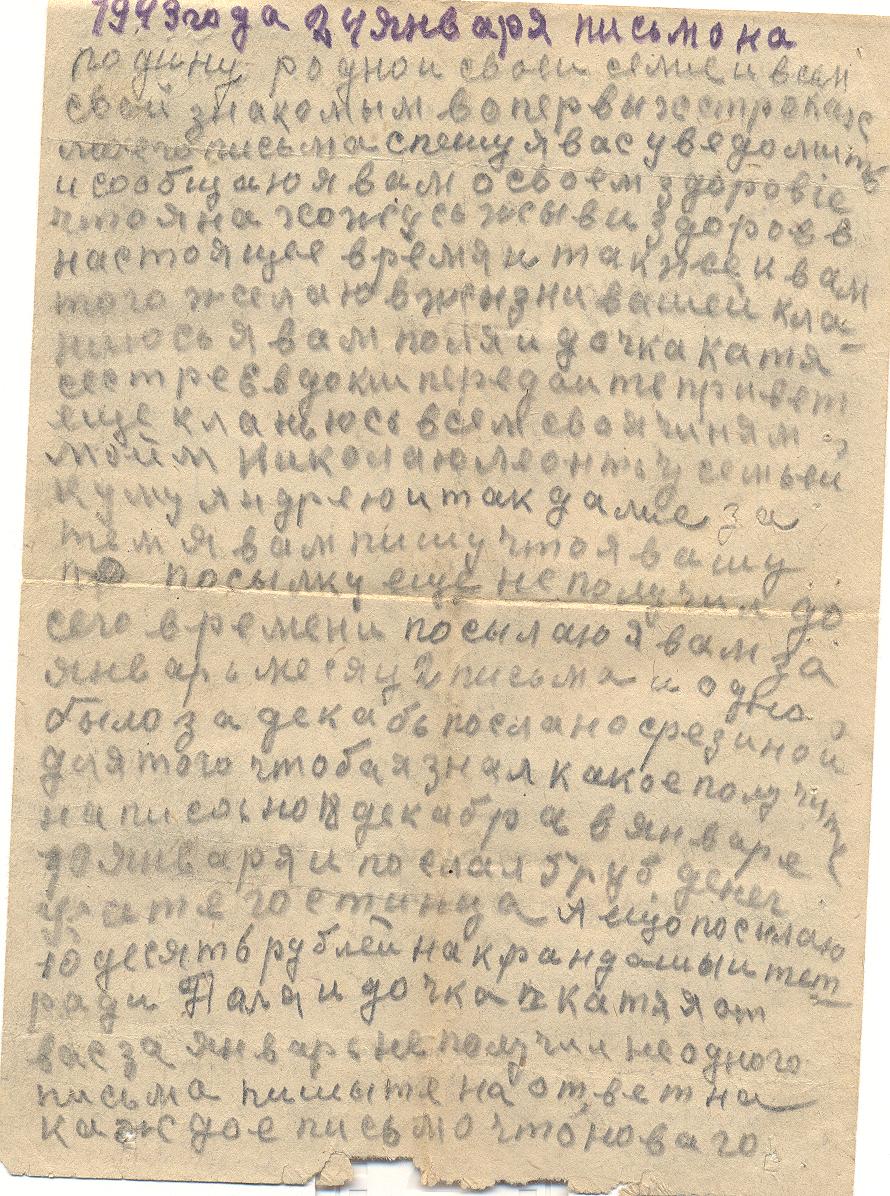 1943 года 24 января письмо на
родину родной своей семие и всем
свой знакомым во первых строках
моего письма спешу я вас уведомить
и сообщаю я вам о своем здоровіе
что я на хожусь жыв и здоров в
настоящее время и так же и вам
того желаю в жизни вашей кла-
ниюсь я вам поля и дочка катя
сестре Евдоки передайте привет
еще кланьюсь всем своячиням
мойм Николаю леонтьчу семьей
куму яндрею и так далие за
тем я вам пишу что я вашу
по посылку еще не получил до
сего времени посылаю я вам за
январь месяц 2 письма и одно
было за декабь послано срезиной
для того чтоба я знал какое получите
написоьно 18 декабра в январе
10 января и послал 5 руб денег
кате гостинца я ещо посылаю
10 десять рублей на крандашы и тет-
ради Паля и дочка катя я от
вас за январь не получил не одного
письма пишыте на ответ на
каждое письмо что новаго